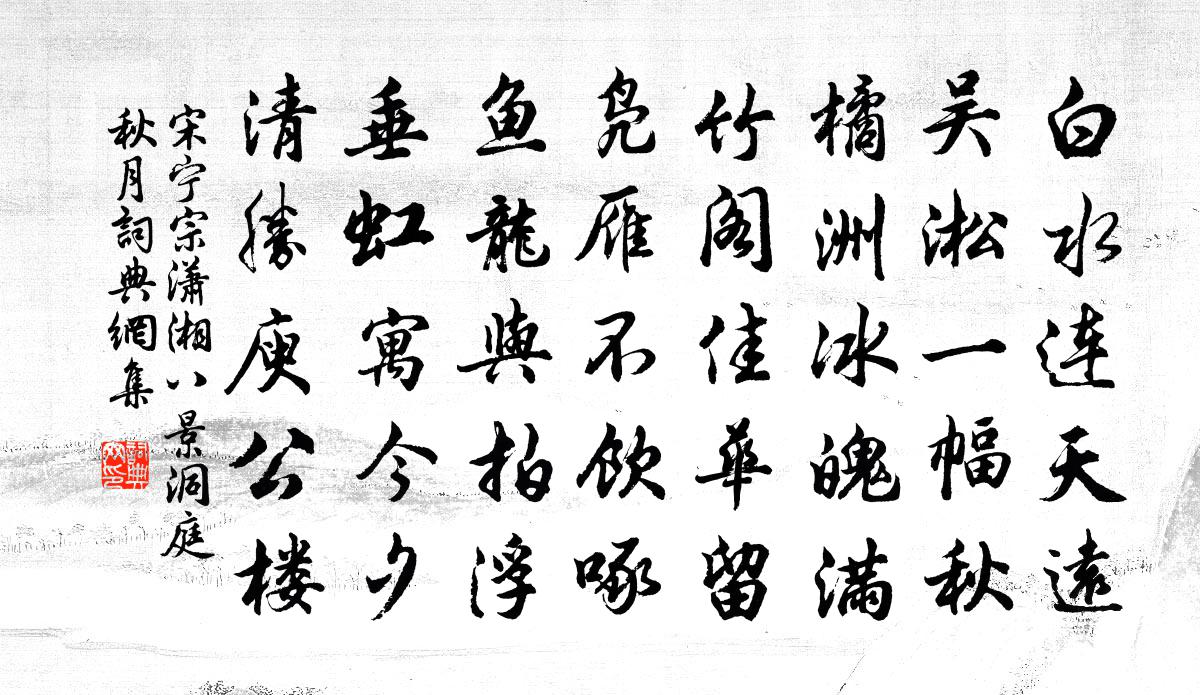 白水连天远
吴淞一幅秋
橘洲冰魄满
竹阁佳華留
凫雁不饮啄
鱼龍與拍浮
垂虹寓今夕
清勝庾公楼
宋宁宗潇湘八景洞庭
秋月詞典網集